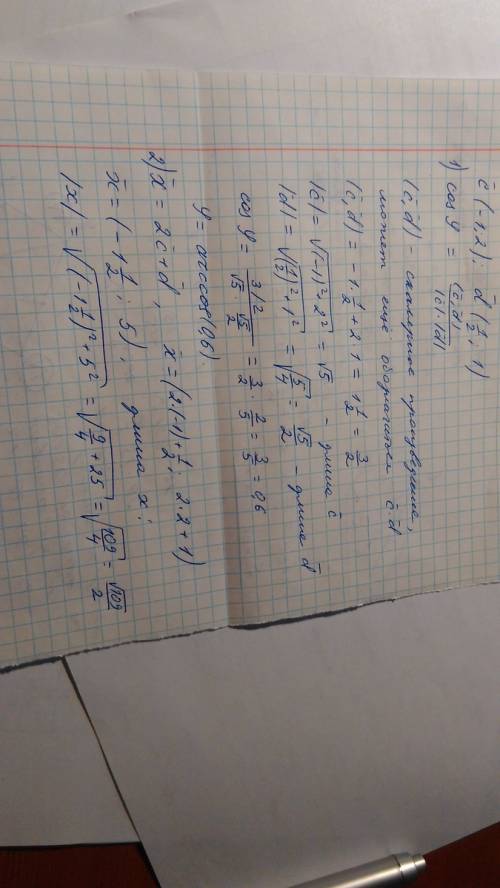 c̄ (-1,2); d̄ (1/2; 1)
1) cos φ = (c̄, d̄) / |c̄|·|d̄|
(c̄, d̄) - скалярное произведение,
может ещё обозначаться c̄·d̄
(c̄, d̄) = -1·1/2 + 2·1 = 1 1/2 = 3/2
|c̄| = √((-1)² + 2²) = √5 - длина c̄
|d̄| = √((1/2)² + 1²) = √(5/4) = √5/2 - длина d̄
cos φ = (3/2) / (√5 · √5/2) = 3/2 · 2/5 = 3/5 = 0,6
φ = arccos(0,6).
2) x̄ = 2c̄ + d̄, x̄ = (2·(-1) + 1/2; 2·2 + 1)
x̄ = (-1 1/2; 5), длина x̄:
|x̄| = √((-1 1/2)² + 5²) = √(9/4 + 25) = √(109/4) = √109/2